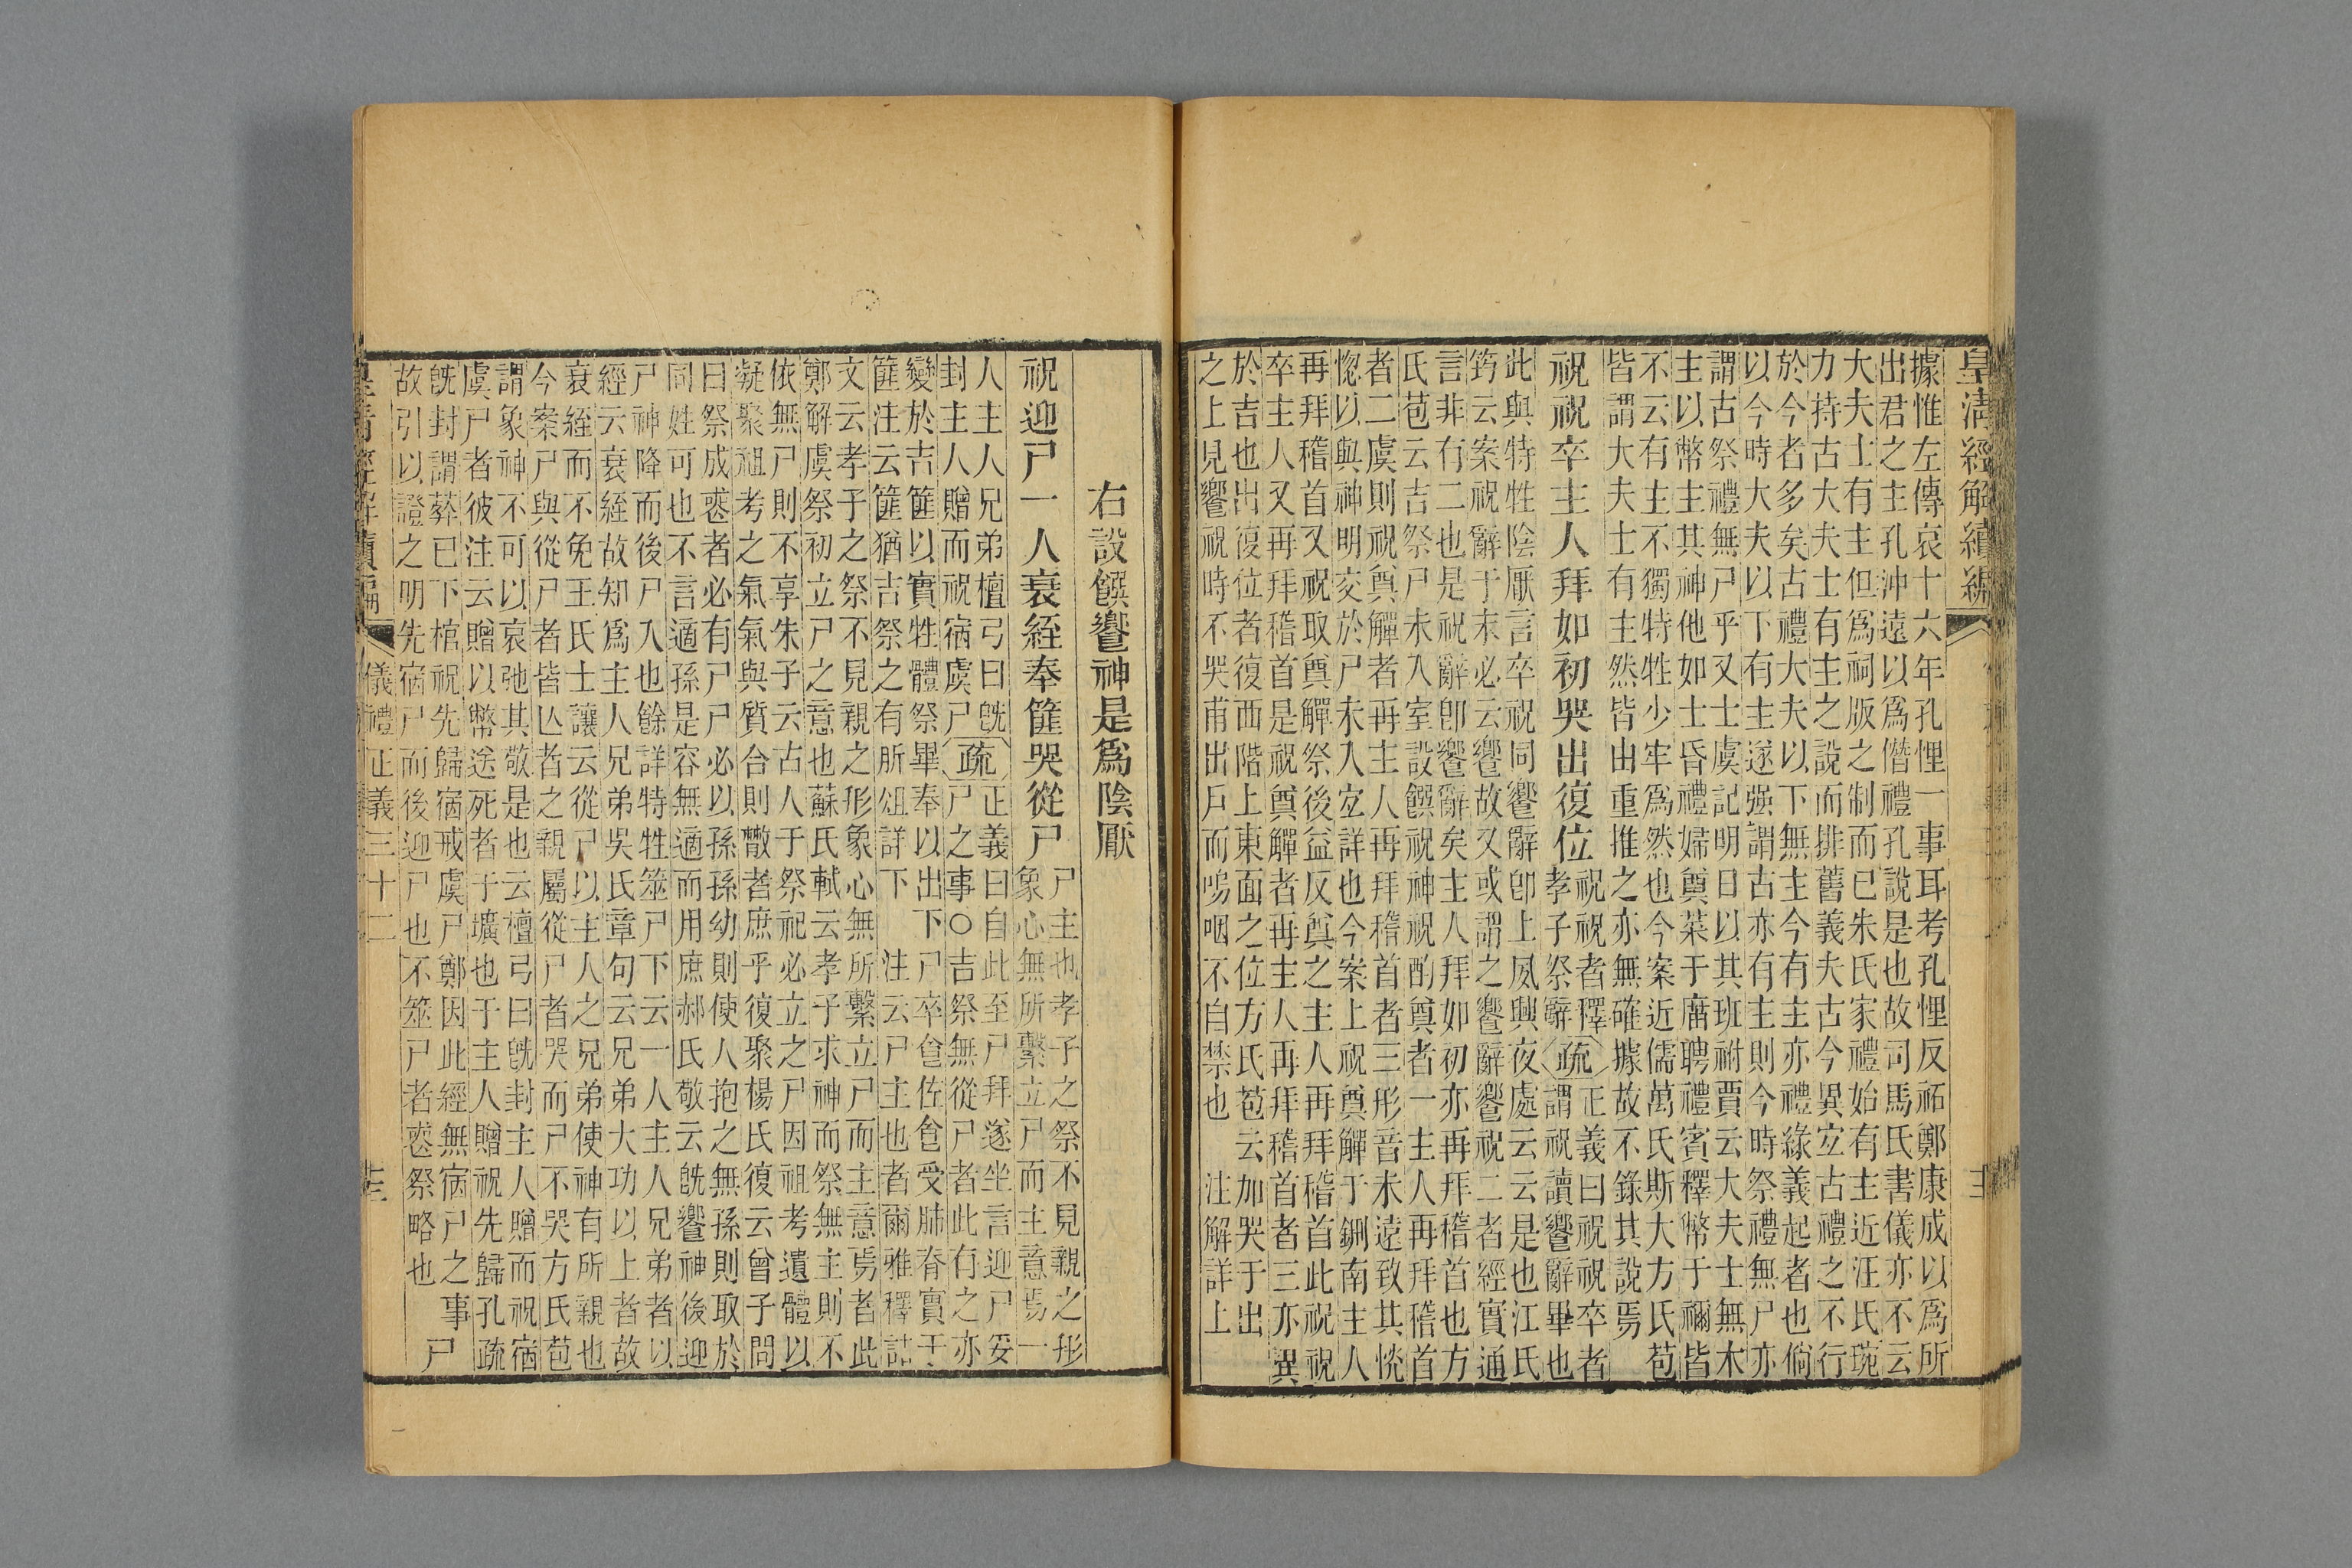 皇清經解續編
據惟左傳哀十六年孔悝一事耳考孔悝反祏鄭康成以為所
出君之主孔沖遠以為僭禮孔說是也故司馬氏書儀亦不云
大夫士有主但為祠版之制而已朱氏家禮始有主近汪氏琬
力持古大夫士有主之說而排舊義夫古今異宐古禮之不行
於今者多矣古禮大夫以下無主今有主亦禮緣義起者也倘
以今時大夫以下有主遂强謂古亦有主則今時祭禮無尸亦
謂古祭禮無尸乎又士虞記明日以其班祔賈云大夫士無木
主以幣主其神他如士昏禮婦奠菜于廟聘禮賓釋幣于禰皆
不云有主不獨特牲少牢為然也今案近儒萬氏斯大方氏苞
皆謂大夫士有主然皆由重推之亦無確據故不錄其說焉
祝祝卒主人拜如初哭出復位
祝祝者釋
孝子祭辭
疏
正義曰祝祝卒者
謂祝讀饗辭畢也
此與特牲陰厭言卒祝同饗辭卽上夙興夜處云云是也江氏
筠云案祝辭于末必云饗故又或謂之饗辭饗祝二者經實通
言非有二也是祝辭卽饗辭矣主人拜如初亦再拜稽首也方
氏苞云吉祭尸未入室設饌祝神祝酌奠者一主人再拜稽首
者二虞則祝奠觶者再主人再拜稽首者三形音未遠致其㤀
惚以與神明交於尸未入宐詳也今案上祝奠觶于鉶南主人
再拜稽首又祝取奠觶祭後益反奠之主人再拜稽首此祝祝
卒主人又再拜稽首是祝奠觶者再主人再拜稽首者三亦異
於吉也出復位者復西階上東面之位方氏苞云加哭于出
之上見饗祝時不哭甫出戶而嗚咽不自禁也　注解詳上
右設饌饗神是為陰厭
祝迎尸一人衰絰奉篚哭從尸
尸主也孝子之祭不見親之形
象心無所繫立尸而主意焉一
人主人兄弟檀弓曰旣
封主人贈而祝宿虞尸
疏
正義曰自此至尸拜遂坐言迎尸妥
尸之事○吉祭無從尸者此有之亦
變於吉篚以實牲體祭畢奉以出下　尸卒食佐食受肺脊實于
篚注云篚猶吉祭之有肵俎詳下　注云尸主也者爾雅釋詁
文云孝子之祭不見親之形象心無所繫立尸而主意焉者此
鄭解虞祭初立尸之意也蘇氏軾云孝子求神而祭無主則不
依無尸則不享朱子云古人于祭祀必立之尸因祖考遺體以
凝聚祖考之氣氣與質合則散者庶乎復聚楊氏復云曾子問
曰祭成喪者必有尸尸必以孫孫幼則使人抱之無孫則取於
同姓可也不言適孫是容無適而用庶郝氏敬云旣饗神後迎
尸神降而後尸入也餘詳特牲筮尸下云一人主人兄弟者以
經云衰絰故知為主人兄弟吳氏章句云兄弟大功以上者故
衰絰而不免王氏士讓云從尸以主人之兄弟使神有所親也
今案尸與從尸者皆亾者之親屬從尸者哭而尸不哭方氏苞
謂象神不可以哀弛其敬是也云檀弓曰旣封主人贈而祝宿
虞尸者彼注云贈以幣送死者于壙也于主人贈祝先歸孔疏
旣封謂葬已下棺祝先歸宿戒虞尸鄭因此經無宿尸之事尸
故引以證之明先宿尸而後迎尸也不筮尸者喪祭略也
皇清經解續編
儀禮正義三十二